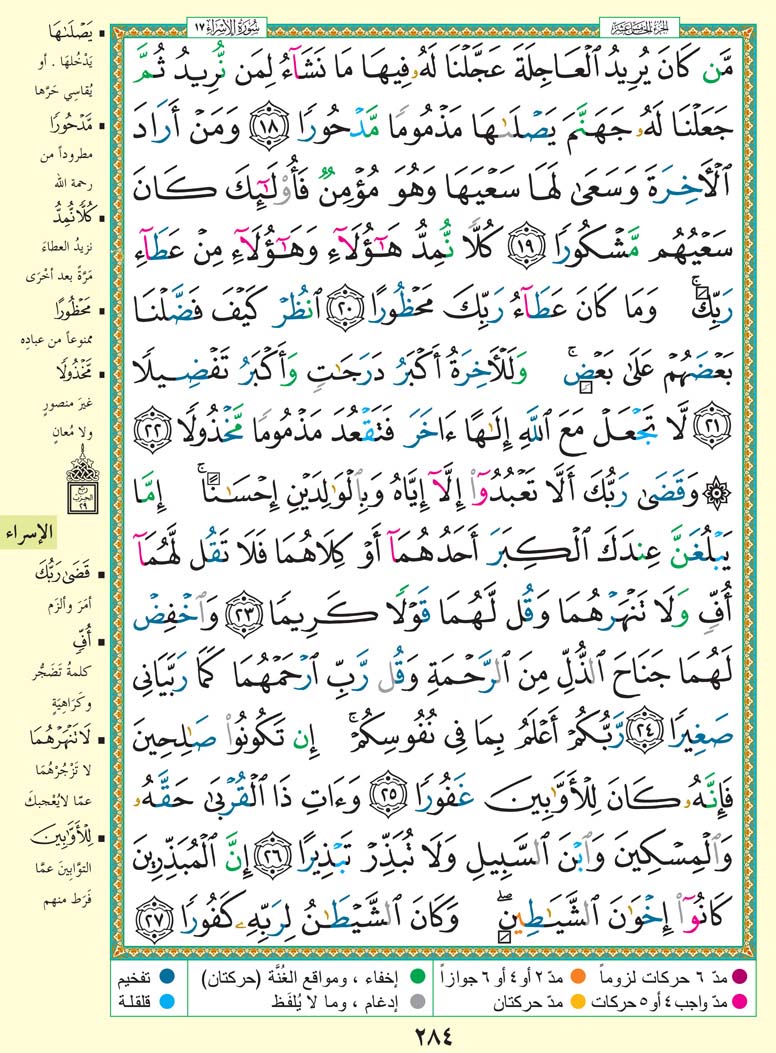 سُورَةُ الإِسْرَاءِ ١٧
الجُزءُ الخَامِسَ عَشَرَ
مَّن كَانَ يُرِيدُ ٱلْعَاجِلَةَ عَجَّلْنَا لَهُۥ فِيهَا مَا نَشَآءُ لِمَن نُّرِيدُ ثُمَّ
جَعَلْنَا لَهُۥ جَهَنَّمَ يَصْلَىٰهَا مَذْمُومًا مَّدْحُورًا ١٨ وَمَنْ أَرَادَ
ٱلْأَخِرَةَ وَسَعَىٰ لَهَا سَعْيَهَا وَهُوَ مُؤْمِنٌ فَأُو۟لَٰٓئِكَ كَانَ
سَعْيُهُم مَّشْكُورًا ١٩ كُلًّا نُّمِدُّ هَٰٓؤُلَآءِ وَهَٰٓؤُلَآءِ مِنْ عَطَآءِ
رَبِّكَ ۚ وَمَا كَانَ عَطَآءُ رَبِّكَ مَحْظُورًا ٢٠ ٱنظُرْ كَيْفَ فَضَّلْنَا
بَعْضَهُمْ عَلَىٰ بَعْضٍ ۚ وَلَلْأَخِرَةُ أَكْبَرُ دَرَجَٰتٍ وَأَكْبَرُ تَفْضِيلًا
٢١ لَّا تَجْعَلْ مَعَ ٱللَّهِ إِلَٰهًا ءَاخَرَ فَتَقْعُدَ مَذْمُومًا مَّخْذُولًا ٢٢
۞ وَقَضَىٰ رَبُّكَ أَلَّا تَعْبُدُوٓا۟ إِلَّآ إِيَّاهُ وَبِٱلْوَٰلِدَيْنِ إِحْسَٰنًا ۚ إِمَّا
يَبْلُغَنَّ عِندَكَ ٱلْكِبَرَ أَحَدُهُمَآ أَوْ كِلَاهُمَا فَلَا تَقُل لَّهُمَآ
أُفٍّ وَلَا تَنْهَرْهُمَا وَقُل لَّهُمَا قَوْلًا كَرِيمًا ٢٣ وَٱخْفِضْ
لَهُمَا جَنَاحَ ٱلذُّلِّ مِنَ ٱلرَّحْمَةِ وَقُل رَّبِّ ٱرْحَمْهُمَا كَمَا رَبَّيَانِى
صَغِيرًا ٢٤ رَّبُّكُمْ أَعْلَمُ بِمَا فِى نُفُوسِكُمْ ۚ إِن تَكُونُوا۟ صَٰلِحِينَ
فَإِنَّهُۥ كَانَ لِلْأَوَّٰبِينَ غَفُورًا ٢٥ وَءَاتِ ذَا ٱلْقُرْبَىٰ حَقَّهُۥ
وَٱلْمِسْكِينَ وَٱبْنَ ٱلسَّبِيلِ وَلَا تُبَذِّرْ تَبْذِيرًا ٢٦ إِنَّ ٱلْمُبَذِّرِينَ
كَانُوٓا۟ إِخْوَٰنَ ٱلشَّيَٰطِينِ ۖ وَكَانَ ٱلشَّيْطَٰنُ لِرَبِّهِۦ كَفُورًا ٢٧
يَصْلَىٰهَا
يَدْخُلها . أو
يُقاسِي حَرَّها
مَّدْحُورًا
مطروداً من
رحمة الله
كُلًّا نُمِدُّ
نزيدُ العطاءَ
مَرَّةً بعد أخْرَى
مَحْظُورًا
ممنوعاً من عبادِه
مَّخْذُولًا
غيرَ منصورٍ
ولا مُعانٍ
ربع
الحزب
٢٩
الإسراء
قَضَىٰ رَبُّكَ
أمَرَ وألزَم
أُفٍّ
كلمةُ تَضَجُّر
وكَرَاهِيَةٍ
لَا تَنْهَرْهُمَا
لا تَزْجُرْهُمَا
عمّا لايُعْجبكَ
لِلْأَوَّٰبِينَ
التوَّابينَ عمَّا
فَرَط منهم
مدّ ٦ حركات لزوماً
مدّ ٢ أو ٤ أو ٦ جوازاً
إخفاء ، ومواقع الغُنَّة (حركتان)
تفخيم
مدّ واجب ٤ أو ٥ حركات
مدّ حركتان
إدغام ، وما لا يُلفَظ
قلقلة
٢٨٤